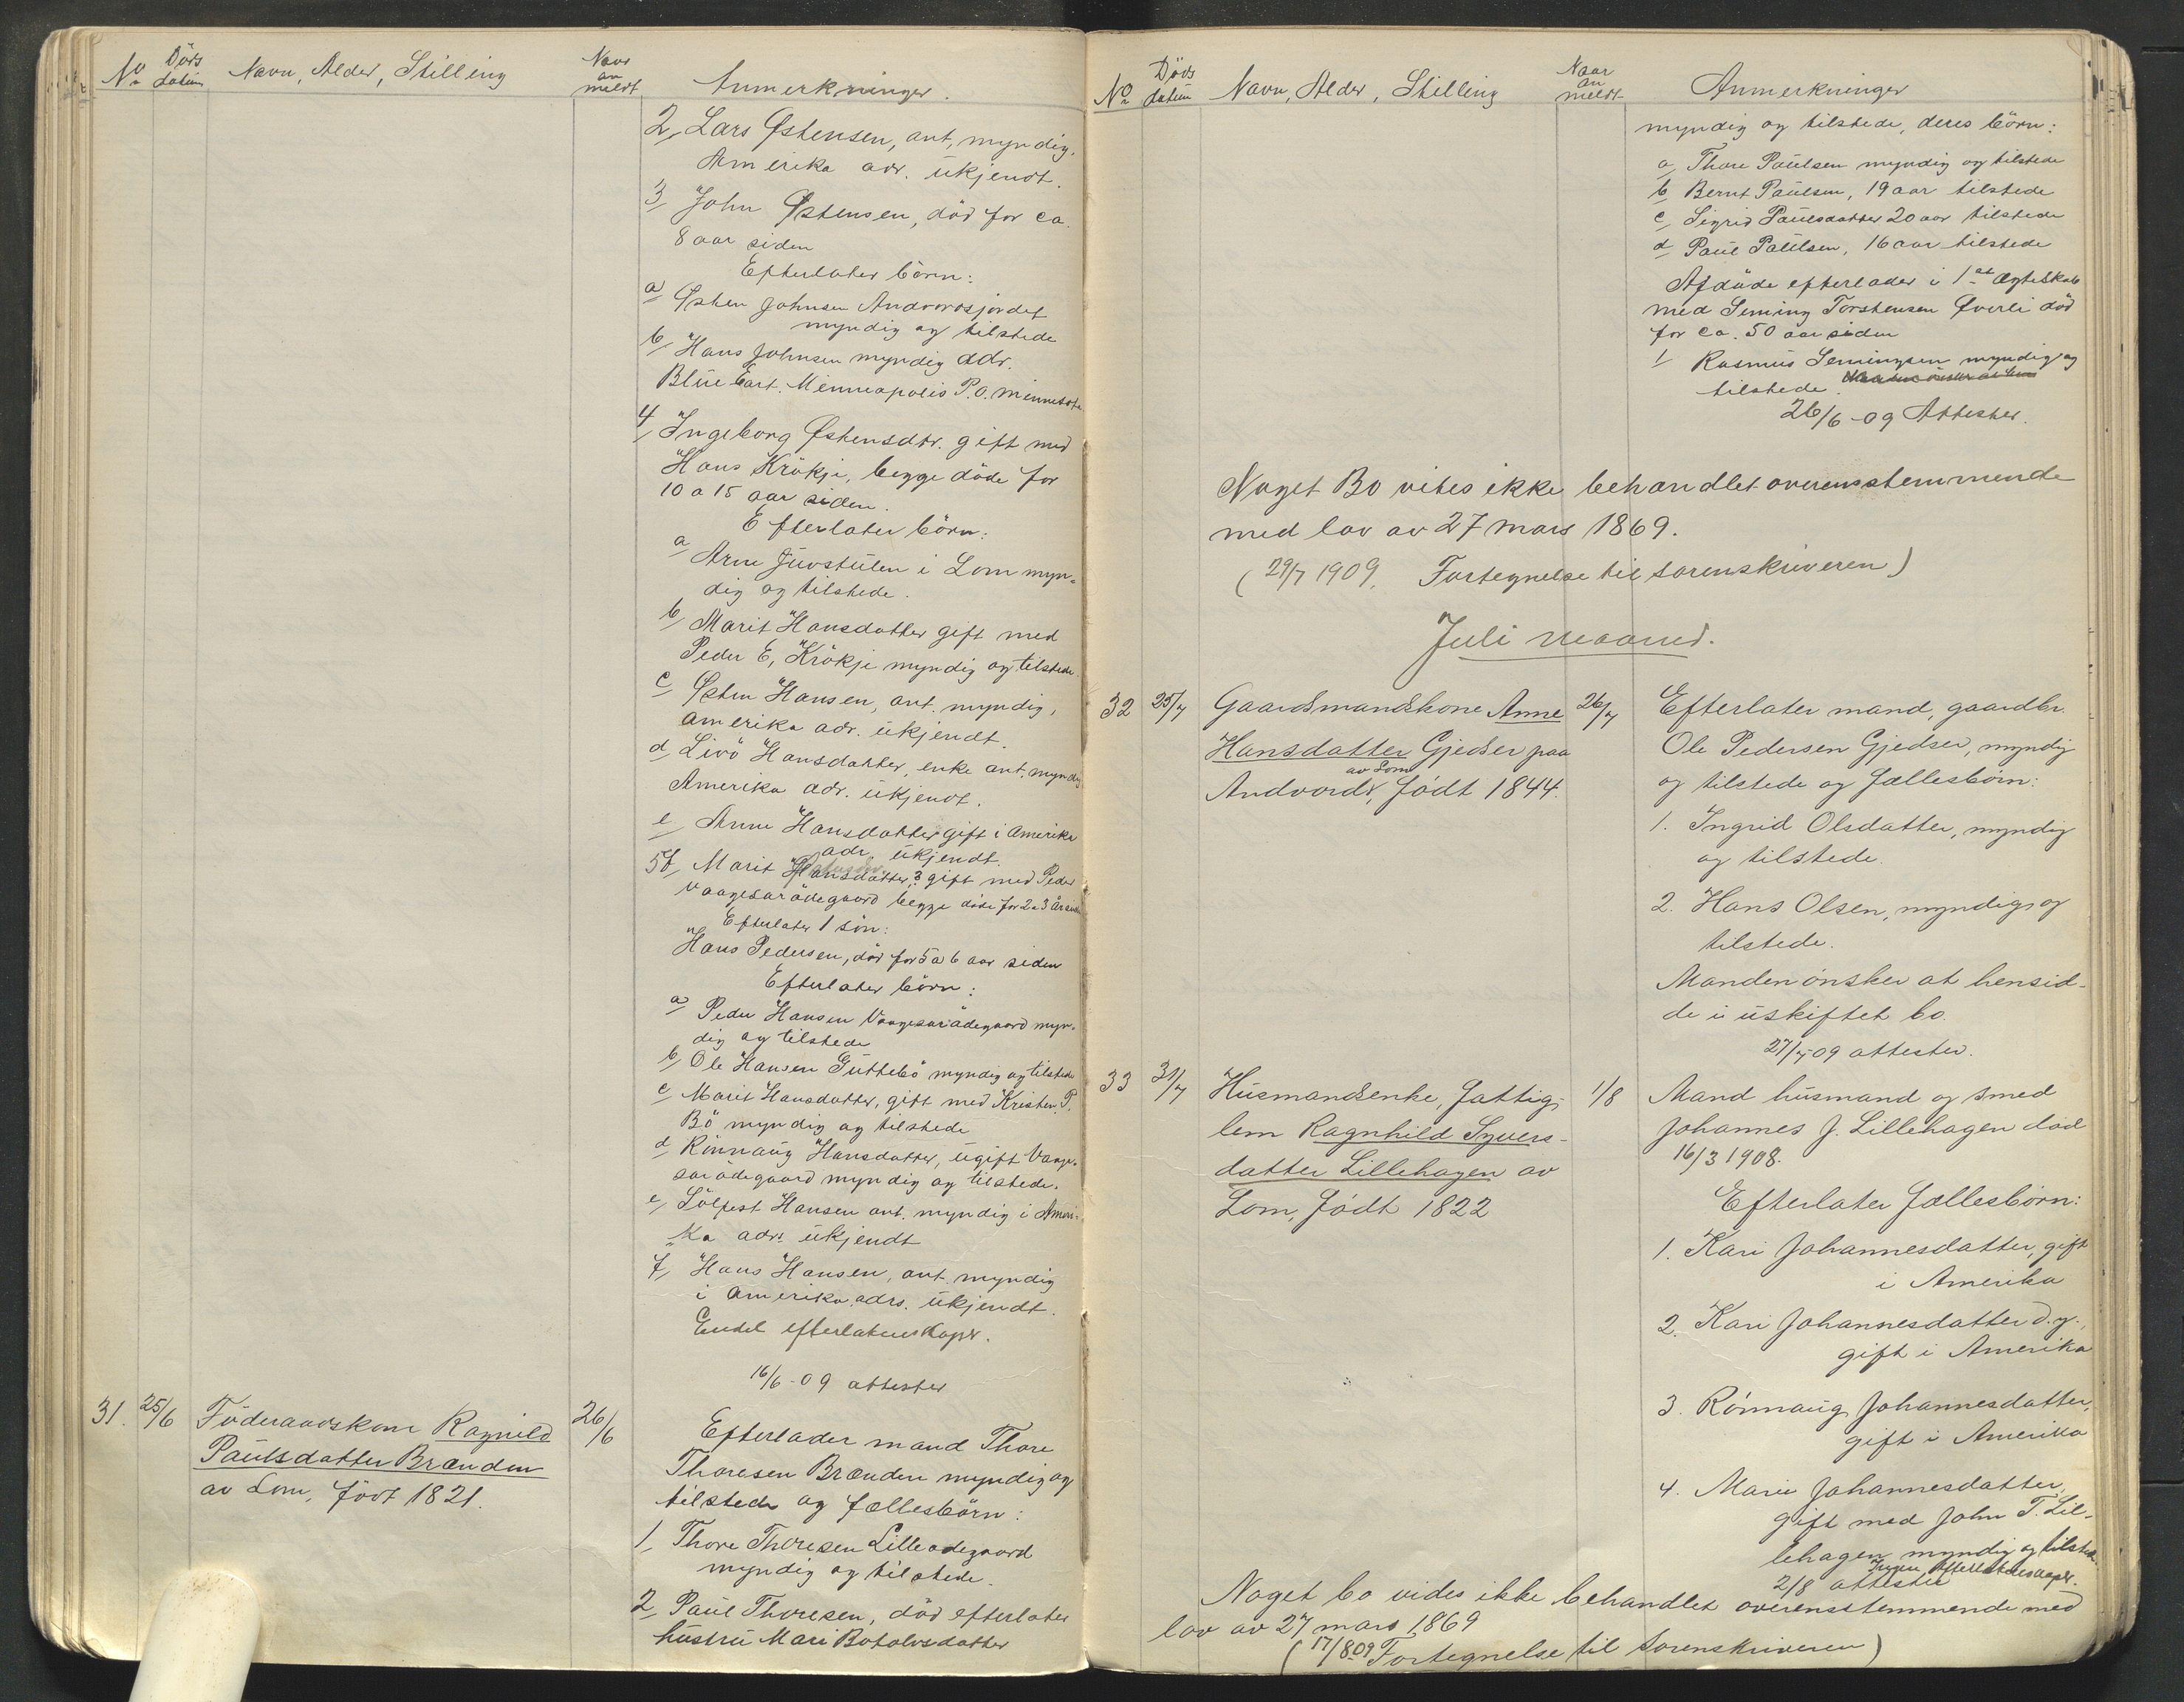 No Døds datum Navn, Alder, Stilling Naar an meldt Anmerkninger.
2, Lars Østensen, ant, myndig.
Amerika adr. ukjendt.
3, John Østensen, död for ca.
8 aar siden
Efterlater börn:
a, Østen Johnsen Andvordsjordet
myndig og tilstede
b, Hans Johnsen myndig adr.
Blue Eart. Minneapolis P.O. Minnesota
4, Ingeborg Østensdtr. gift med
Hans Krökje, begge döde for
10 a 15 aar siden.
Efterlater börn:
a, Arne Juvstulen i Lom myn-
dig og tilstede.
b, Marit Hansdatter gift med
Peder E, Krökje myndig og tilstede.
c, Østen Hansen, ant. myndig,
Amerika adr. ukjendt.
d, Livö Hansdatter, enke ant. myndig
Amerika adr. ukjendt.
e, Anne Hansdatter gift i Amerika
adr. ukjendt.
5, Marit gift med Peder
Vaagesarödegaard begge döde for 2 a 3 år siden
Efterlater 1 sön:
Hans Pedersen, död for 5 a 6 aar siden
Efterlater börn:
a, Peder Hansen Vaagesarödegaard myn-
dig og tilstede
b, Ole Hansen Guttebö myndig og tilstede
c, Marit Hansdatter, gift med Kristen P.
Bö myndig og tilstede
d, Rönnaug Hansdatter, ugift Vaage-
sarödegaard myndig og tilstede.
e, Sölfest Hansen ant. myndig i Ameri-
ka adr. ukjendt
f, Hans Hansen, ant. myndig
i Amerika adrs. ukjendt.
Endel efterladenskaper.
16/6-09 attester
31. 25/6 Föderaadskone Ragnild 26/6 Efterlader mand Thore
Paulsdatter Brænden Thoresen Brænden myndig og
av Lom, född 1821. tilstede og fællesbörn:
1, Thore Thoresen Lilleödegaard
myndig og tilstede.
2, Paul Thoresen, död efterlater
hustru Mari Botolvsdatter
No Døds datum Navn, Alder, Stilling Naar an meldt Anmerkninger
myndig og tilstede, deres börn:
a, Thore Paulsen myndig og tilstede
b, Bernt Paulsen, 19 aar tilstede
c, Sigrid Paulsdatter 20 aar tilstede
d, Paul Paulsen, 16 aar tilstede
Afdöde efterlader i 1ste ægteskab
med Seming Torstensen Øverli död
for ca. 50 aar siden
1 Rasmus Semingsen myndig og
tilstede.
26/6-09 Attester.
Noget Bo vites ikke behandlet overensstemmende
med lov av 27 mars 1869.
(29/7 1909. Fortegnelse til sorenskriveren)
Juli maaned.
32 25/7 Gaardmandskone Anne 26/7 Efterlater mand, gaardbr.
Hansdatter Gjedser paa Ole Pedersen Gjedser, myndig
av Lom
Andvord, født 1844. og tilstede og fællesbörn:
1. Ingrid Olsdatter, myndig
og tilstede.
2. Hans Olsen, myndig og
tilstede.
Manden önsker at hensid-
de i uskiftet bo.
27/7-09 attester.
33 31/7 Husmandsenke, fattig- 1/8 Mand husmand og smed
lem Ragnhild Syvers- Johannes J. Lillehagen död
datter Lillehagen av 16/3 1908.
Lom, født 1822 Efterlater fællesbörn:
1. Kari Johannesdatter, gift
i Amerika
2. Kari Johannesdatter d.y.,
gift i Amerika
3. Rönnaug Johannesdatter,
gift i Amerika
4. Marie Johannesdatter,
gift med John T. Lil-
lehagen myndig og tilstede.
Ingen efterladenskaper.
2/8 attester
Noget bo vides ikke behandlet overensstemmende med
lov av 27 mars 1869
(17/8 09 Fortegnelse til Sorenskriveren)